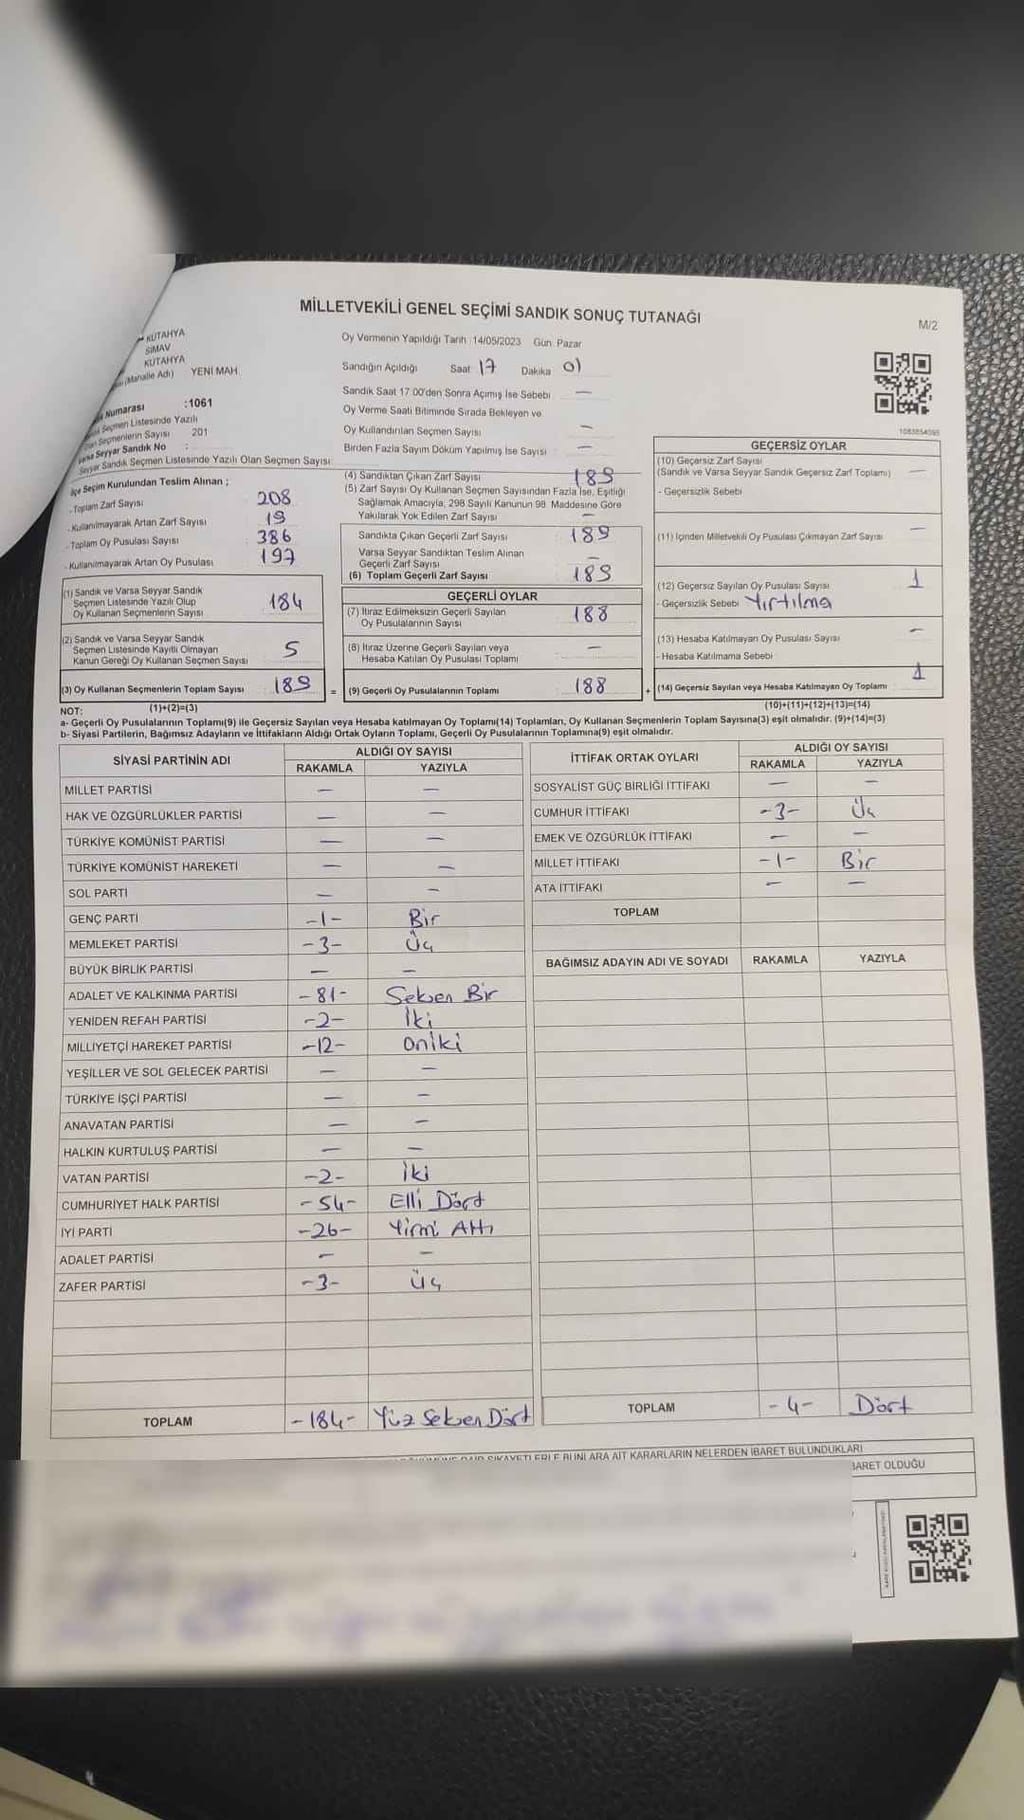 MİLLETVEKİLİ GENEL SEÇİMİ SANDIK SONUÇ TUTANAĞI
M/2
KÜTAHYA
SİMAV
KÜTAHYA
(Mahalle Adı) YENİ MAH.
Numarası :1061
Seçmen Listesinde Yazılı
Seçmenlerin Sayısı 201
Varsa Seyyar Sandık No :
Seyyar Sandık Seçmen Listesinde Yazılı Olan Seçmen Sayısı:
Oy Vermenin Yapıldığı Tarih :14/05/2023 Gün: Pazar
Sandığın Açıldığı Saat: 17 Dakika: 01
Sandık Saat 17:00'den Sonra Açımış İse Sebebi: —
Oy Verme Saati Bitiminde Sırada Bekleyen ve
Oy Kullandırılan Seçmen Sayısı —
Birden Fazla Sayım Döküm Yapılmış İse Sayısı: —
1083854095
İlçe Seçim Kurulundan Teslim Alınan ;
- Toplam Zarf Sayısı 208
- Kullanılmayarak Artan Zarf Sayısı 19
- Toplam Oy Pusulası Sayısı 386
- Kullanılmayarak Artan Oy Pusulası 197
(1) Sandık ve Varsa Seyyar Sandık
Seçmen Listesinde Yazılı Olup
Oy Kullanan Seçmenlerin Sayısı 184
(2) Sandık ve Varsa Seyyar Sandık
Seçmen Listesinde Kayıtlı Olmayan
Kanun Gereği Oy Kullanan Seçmen Sayısı 5
(3) Oy Kullanan Seçmenlerin Toplam Sayısı 189 =
(4) Sandıktan Çıkan Zarf Sayısı 189
(5) Zarf Sayısı Oy Kullanan Seçmen Sayısından Fazla İse, Eşitliği
Sağlamak Amacıyla, 298 Sayılı Kanunun 98. Maddesine Göre
Yakılarak Yok Edilen Zarf Sayısı —
Sandıkta Çıkan Geçerli Zarf Sayısı 189
Varsa Seyyar Sandıktan Teslim Alınan
Geçerli Zarf Sayısı —
(6) Toplam Geçerli Zarf Sayısı 189
GEÇERLİ OYLAR
(7) İtiraz Edilmeksizin Geçerli Sayılan
Oy Pusulalarının Sayısı 188
(8) İtiraz Üzerine Geçerli Sayılan veya
Hesaba Katılan Oy Pusulası Toplamı —
(9) Geçerli Oy Pusulalarının Toplamı 188 +
GEÇERSİZ OYLAR
(10) Geçersiz Zarf Sayısı
(Sandık ve Varsa Seyyar Sandık Geçersiz Zarf Toplamı) —
- Geçersizlik Sebebi
(11) İçinden Milletvekili Oy Pusulası Çıkmayan Zarf Sayısı —
(12) Geçersiz Sayılan Oy Pusulası Sayısı 1
- Geçersizlik Sebebi Yırtılma
(13) Hesaba Katılmayan Oy Pusulası Sayısı —
- Hesaba Katılmama Sebebi
(14) Geçersiz Sayılan veya Hesaba Katılmayan Oy Toplamı 1
NOT: (1)+(2)=(3) (10)+(11)+(12)+(13)=(14)
a- Geçerli Oy Pusulalarının Toplamı(9) ile Geçersiz Sayılan veya Hesaba katılmayan Oy Toplamı(14) Toplamları, Oy Kullanan Seçmenlerin Toplam Sayısına(3) eşit olmalıdır. (9)+(14)=(3)
b- Siyasi Partilerin, Bağımsız Adayların ve İttifakların Aldığı Ortak Oyların Toplamı, Geçerli Oy Pusulalarının Toplamına(9) eşit olmalıdır.
SİYASİ PARTİNİN ADI ALDIĞI OY SAYISI
RAKAMLA YAZIYLA
MİLLET PARTİSİ — —
HAK VE ÖZGÜRLÜKLER PARTİSİ — —
TÜRKİYE KOMÜNİST PARTİSİ — —
TÜRKİYE KOMÜNİST HAREKETİ — —
SOL PARTİ — —
GENÇ PARTİ -1- Bir
MEMLEKET PARTİSİ -3- Üç
BÜYÜK BİRLİK PARTİSİ — —
ADALET VE KALKINMA PARTİSİ -81- Seksen Bir
YENİDEN REFAH PARTİSİ -2- İki
MİLLİYETÇİ HAREKET PARTİSİ -12- oniki
YEŞİLLER VE SOL GELECEK PARTİSİ — —
TÜRKİYE İŞÇİ PARTİSİ — —
ANAVATAN PARTİSİ — —
HALKIN KURTULUŞ PARTİSİ — —
VATAN PARTİSİ -2- İki
CUMHURİYET HALK PARTİSİ -54- Elli Dört
İYİ PARTİ -26- Yirmi Altı
ADALET PARTİSİ — —
ZAFER PARTİSİ -3- Üç
TOPLAM -184- Yüz Seksen Dört
İTTİFAK ORTAK OYLARI ALDIĞI OY SAYISI
RAKAMLA YAZIYLA
SOSYALİST GÜÇ BİRLİĞİ İTTİFAKI — —
CUMHUR İTTİFAKI -3- Üç
EMEK VE ÖZGÜRLÜK İTTİFAKI — —
MİLLET İTTİFAKI -1- Bir
ATA İTTİFAKI — —
TOPLAM
BAĞIMSIZ ADAYIN ADI VE SOYADI RAKAMLA YAZIYLA
TOPLAM -4- Dört
ŞİKAYETLERLE BUNLARA AİT KARARLARIN NELERDEN İBARET BULUNDUKLARI
BARET OLDUĞU